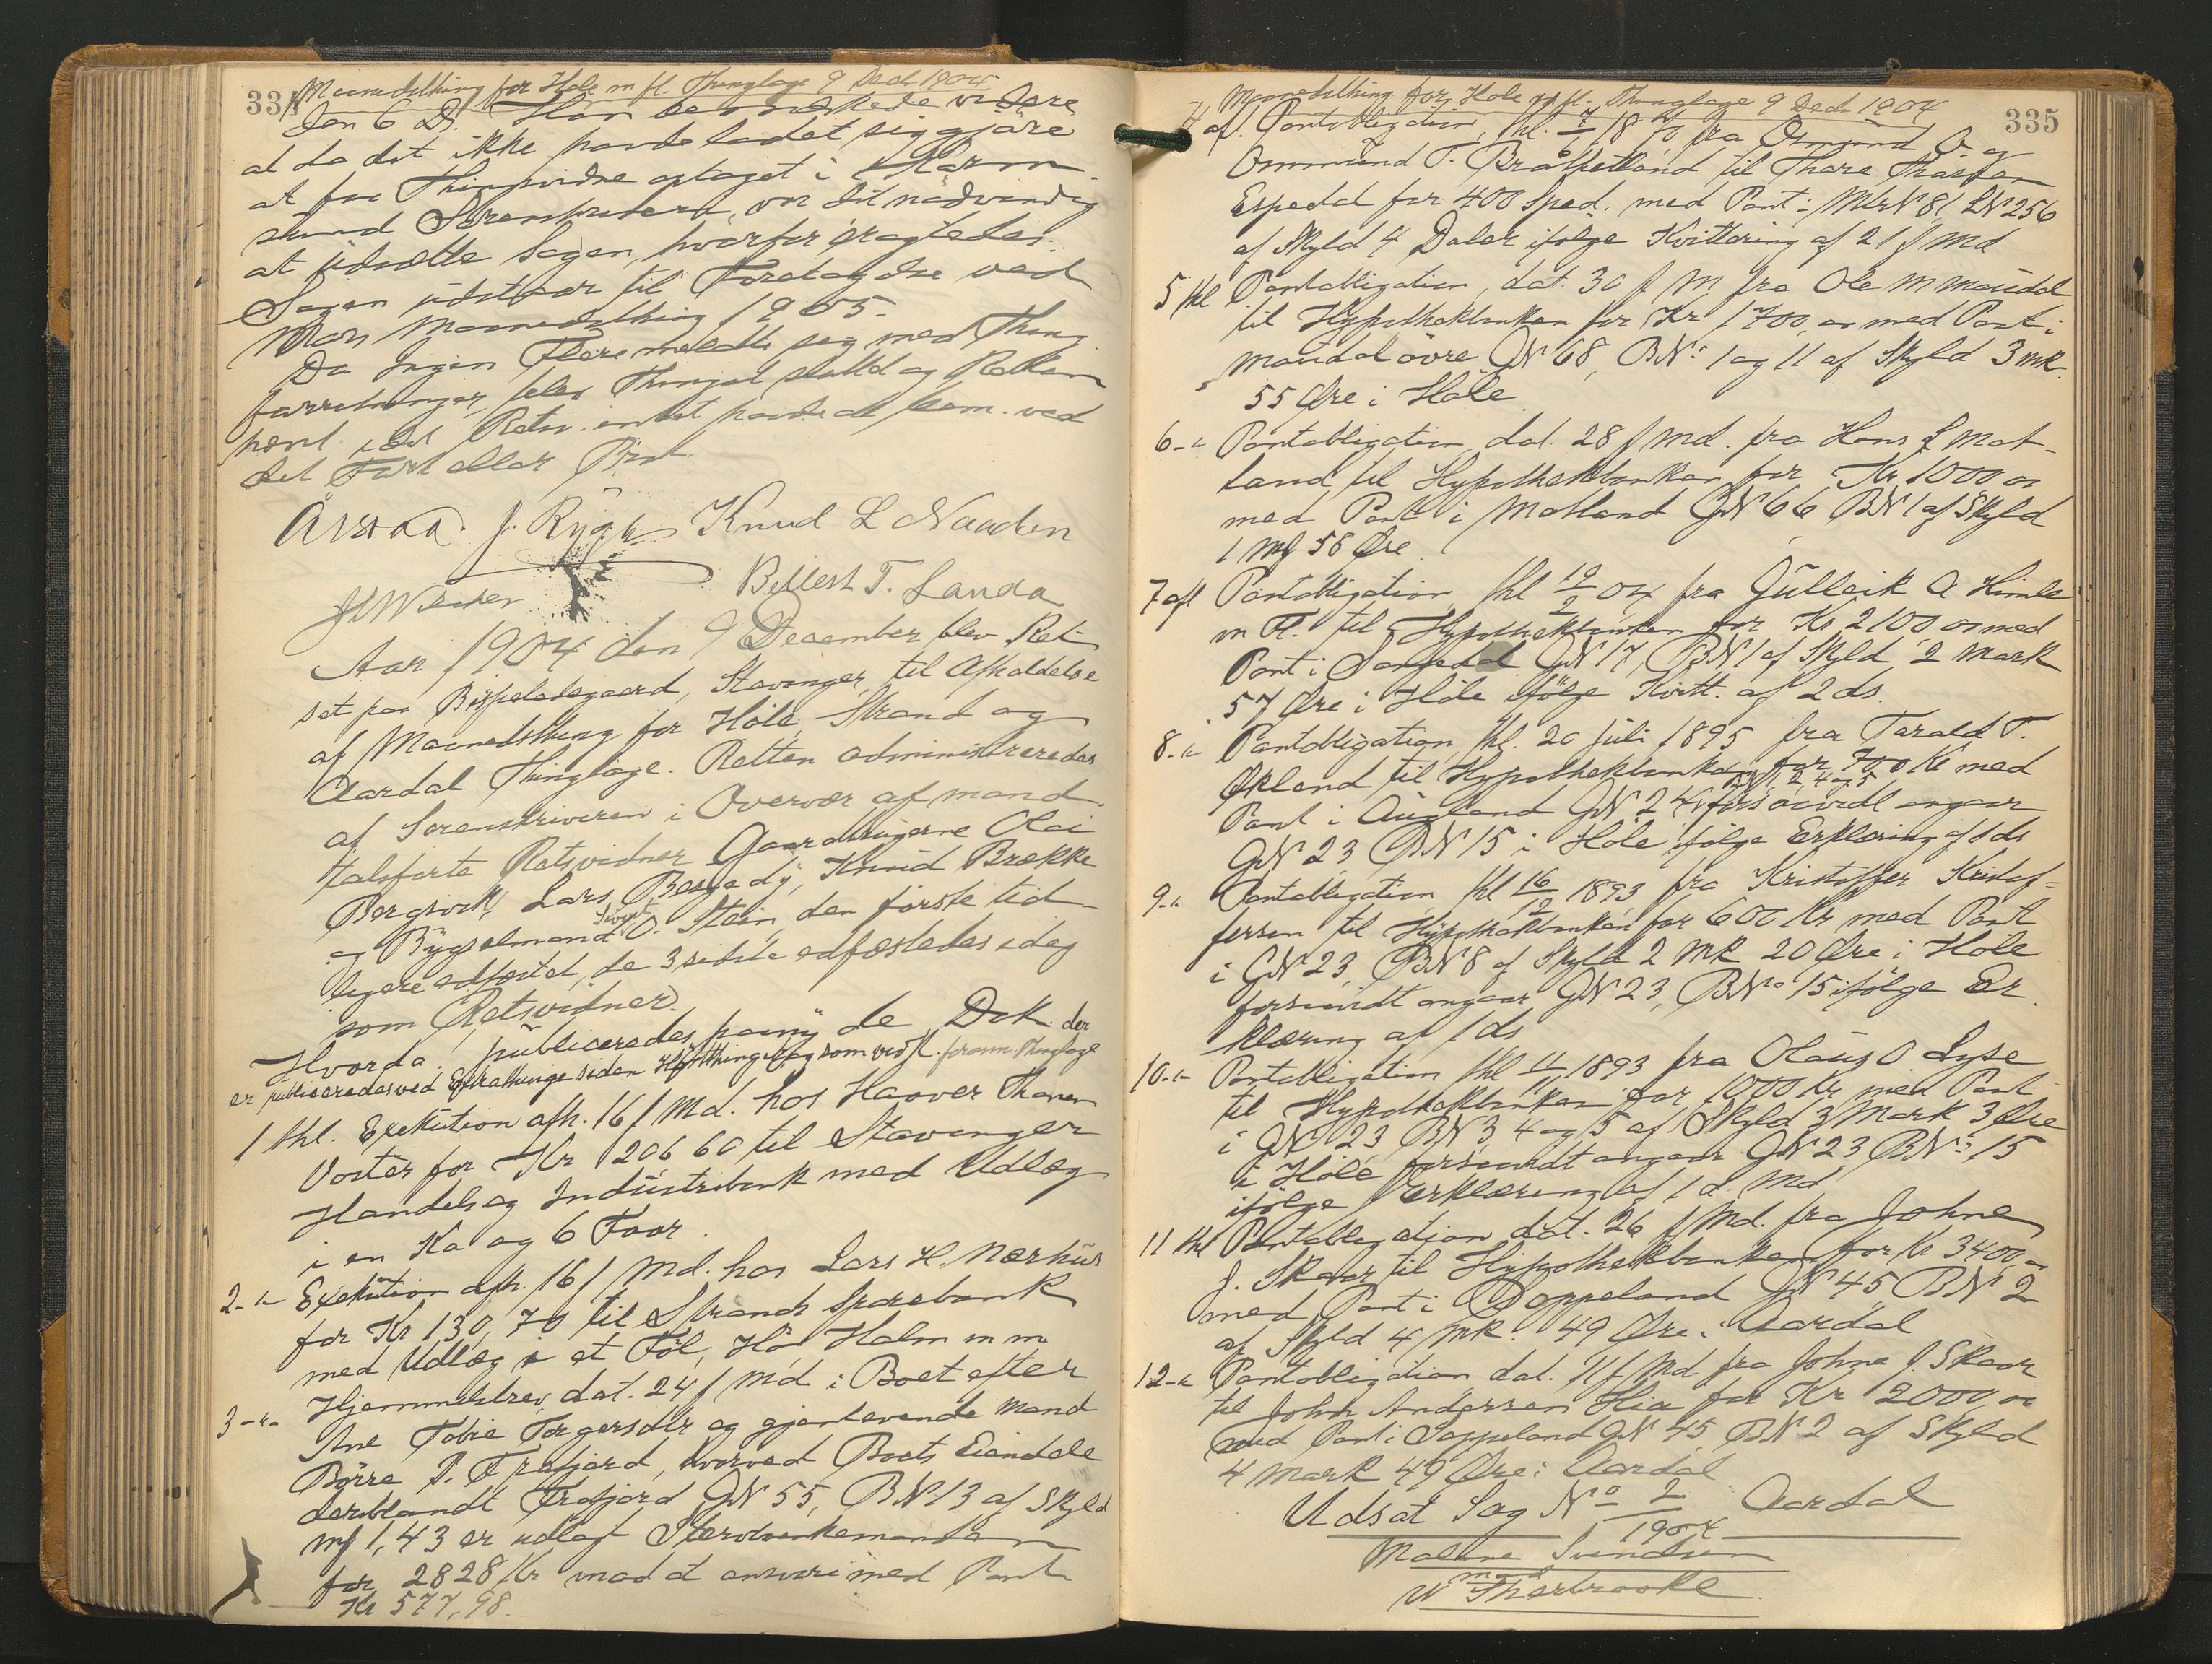 334
Maanedsthing for Høle m fl. Thinglage 9 Decbr 1904
den 6 Ds. Han bemærkede videre
at da det ikke havde ladet sig gjøre
at faa Thingsvidne optaget i Karm-
sund Sorenskriveri, var det nødvendig
at udsætte Sagen, hvorfor paategnedes:
Sagen udstaar til Foretagelse ved
Mars Maanedsthing 1905.
Da Ingen Flere meldte sig med Thing-
forretninger, blev Thinget sluttet og Retten
hævet idet Retsv. intet havde at bem. ved
det Først eller Sidst.
J. Rygh Knud L Naaden
Bellest T. Landa
Aar 1904 den 9 December blev Ret
sat paa Bispeladegaard, Stavanger, til Afholdelse
af Maanedsthing for Høle, Strand og
Aardal Thinglage. Retten administreredes
af Sorenskriveren i Overvær af mand-
talsførte Retsvidner Gaardbrugerne Olai
Bergsvik, Lars Bergedy, Knud Brekke
og Bygselmand Sivert O. Stein, den første tid-
ligere edfæstet, de 3 sidste edfæstedes idag
som Retsvidner.
Hvorda publiceredes paany de Dok. der
er publiceredes ved Extrathinge siden Høstthinget og som ved K. forann. Thinglage
1 thl. Exekution afh. 16 f Md. hos Haaver Thorsen
Voster for Kr 1206 60 til Stavanger
Handels og Industribank med Udlæg
i en Ko og 6 Faar.
2 - " Exekution afh. 16 f Md. hos Lars H. Nærhus
for Kr 130,70 til Strands Sparebank
med Udlæg i et Føl, Hø Halm m m
3 - " Hjemmelsbrev, dat. 24 f Md i Boet efter
Ane Tobie Torgersdtr og gjenlevende Mand
Børre P. Frafjord, hvorved Boets Eiendele
deriblandt Frafjord GN 55, BN 13 af Skyld
mk 1,43 er udlagt Stervbenkemanden
for 2828 Kr mod at ansvare med Pant
Kr 577,98.
335
Maanedsthing for Høle m fl. Thinglage 9 Decbr 1904
4 afl. Pantobligation, thl. 7/6 1870 fra Osmund O. og
Ommund T. Bratsetland til Thore Thorsen
Espedal for 400 Sped. med Pant i MtrN 81 LN 256
af Skyld 4 Daler ifølge Kvittering af 21 f Md
5 thl Pantobligation, dat. 30 f M fra Ole M Maudal
til Hypothekbanken for Kr 1700,00 med Pant i
Maudal øvre GN 68, BN: 1 og 11 af Skyld 3 mk.
55 Øre i Høle
6 - " Pantobligation dat. 28 f Md. fra Hans L Mat-
land til Hypothekbanken for Kr 1000 00
med Pant i Matland GN 66 BN 1 af Skyld
1 mk 58 Øre
7 afl Pantobligation, thl 10/2 04 fra Gulleik A Himle
m Fl. til Hypothekbanken for Kr 2100 00 med
Pant i GN 17, BN 1 af Skyld 2 Mark
57 Øre i Høle ifølge Kvitt. af 2 ds.
8 - " Pantobligation, thl. 20 Juli 1895 fra Tarald T.
Økland til Hypothekbanken for 700 Kr med
Pant i Augland GN 24, BN 2 4 og 5 forsaavidt angaar
GN 23 BN 15 i Høle ifølge Erklæring af 1 ds
9 - " Pantobligation thl 16/12 1893 fra Kristoffer Kristof-
fersen til Hypothekbanken for 600 Kr med Pant
i GN 23, BN 8 af Skyld 2 Mk 20 Øre i Høle
forsavidt angaar GN 23, BNo 15 ifølge Er-
klæring af 1 ds
10 - " Pantobligation thl 4/11 1893 fra Olaus O Lyse
til Hypothekbanken for 1000 Kr med Pant
i GN 23, BN 3, 4 og 5 af Skyld 3 Mark 3 Øre
i Høle forsavidt angaar GN 23 BN: 15
ifølge Erklæring af 1 d. Md
11 thl Pantobligation dat. 26 f Md. fra Johne
J. Skaar til Hypothekbanken for Kr 3400,00
med Pant i Soppeland GN 45 BN 2
af Skyld 4 Mk. 49 Øre i Aardal
12 - " Pantobligation dat. 11 f Md fra Johne J. Skaar
til John Andersen Hia for Kr 2000,00
med Pant i Soppeland GN 45, BN 2 af Skyld
4 Mark 49 Øre i Aardal
Udsat Sag No 2/1904 Aardal
Malene Svendsen
mod
W Therbrooke